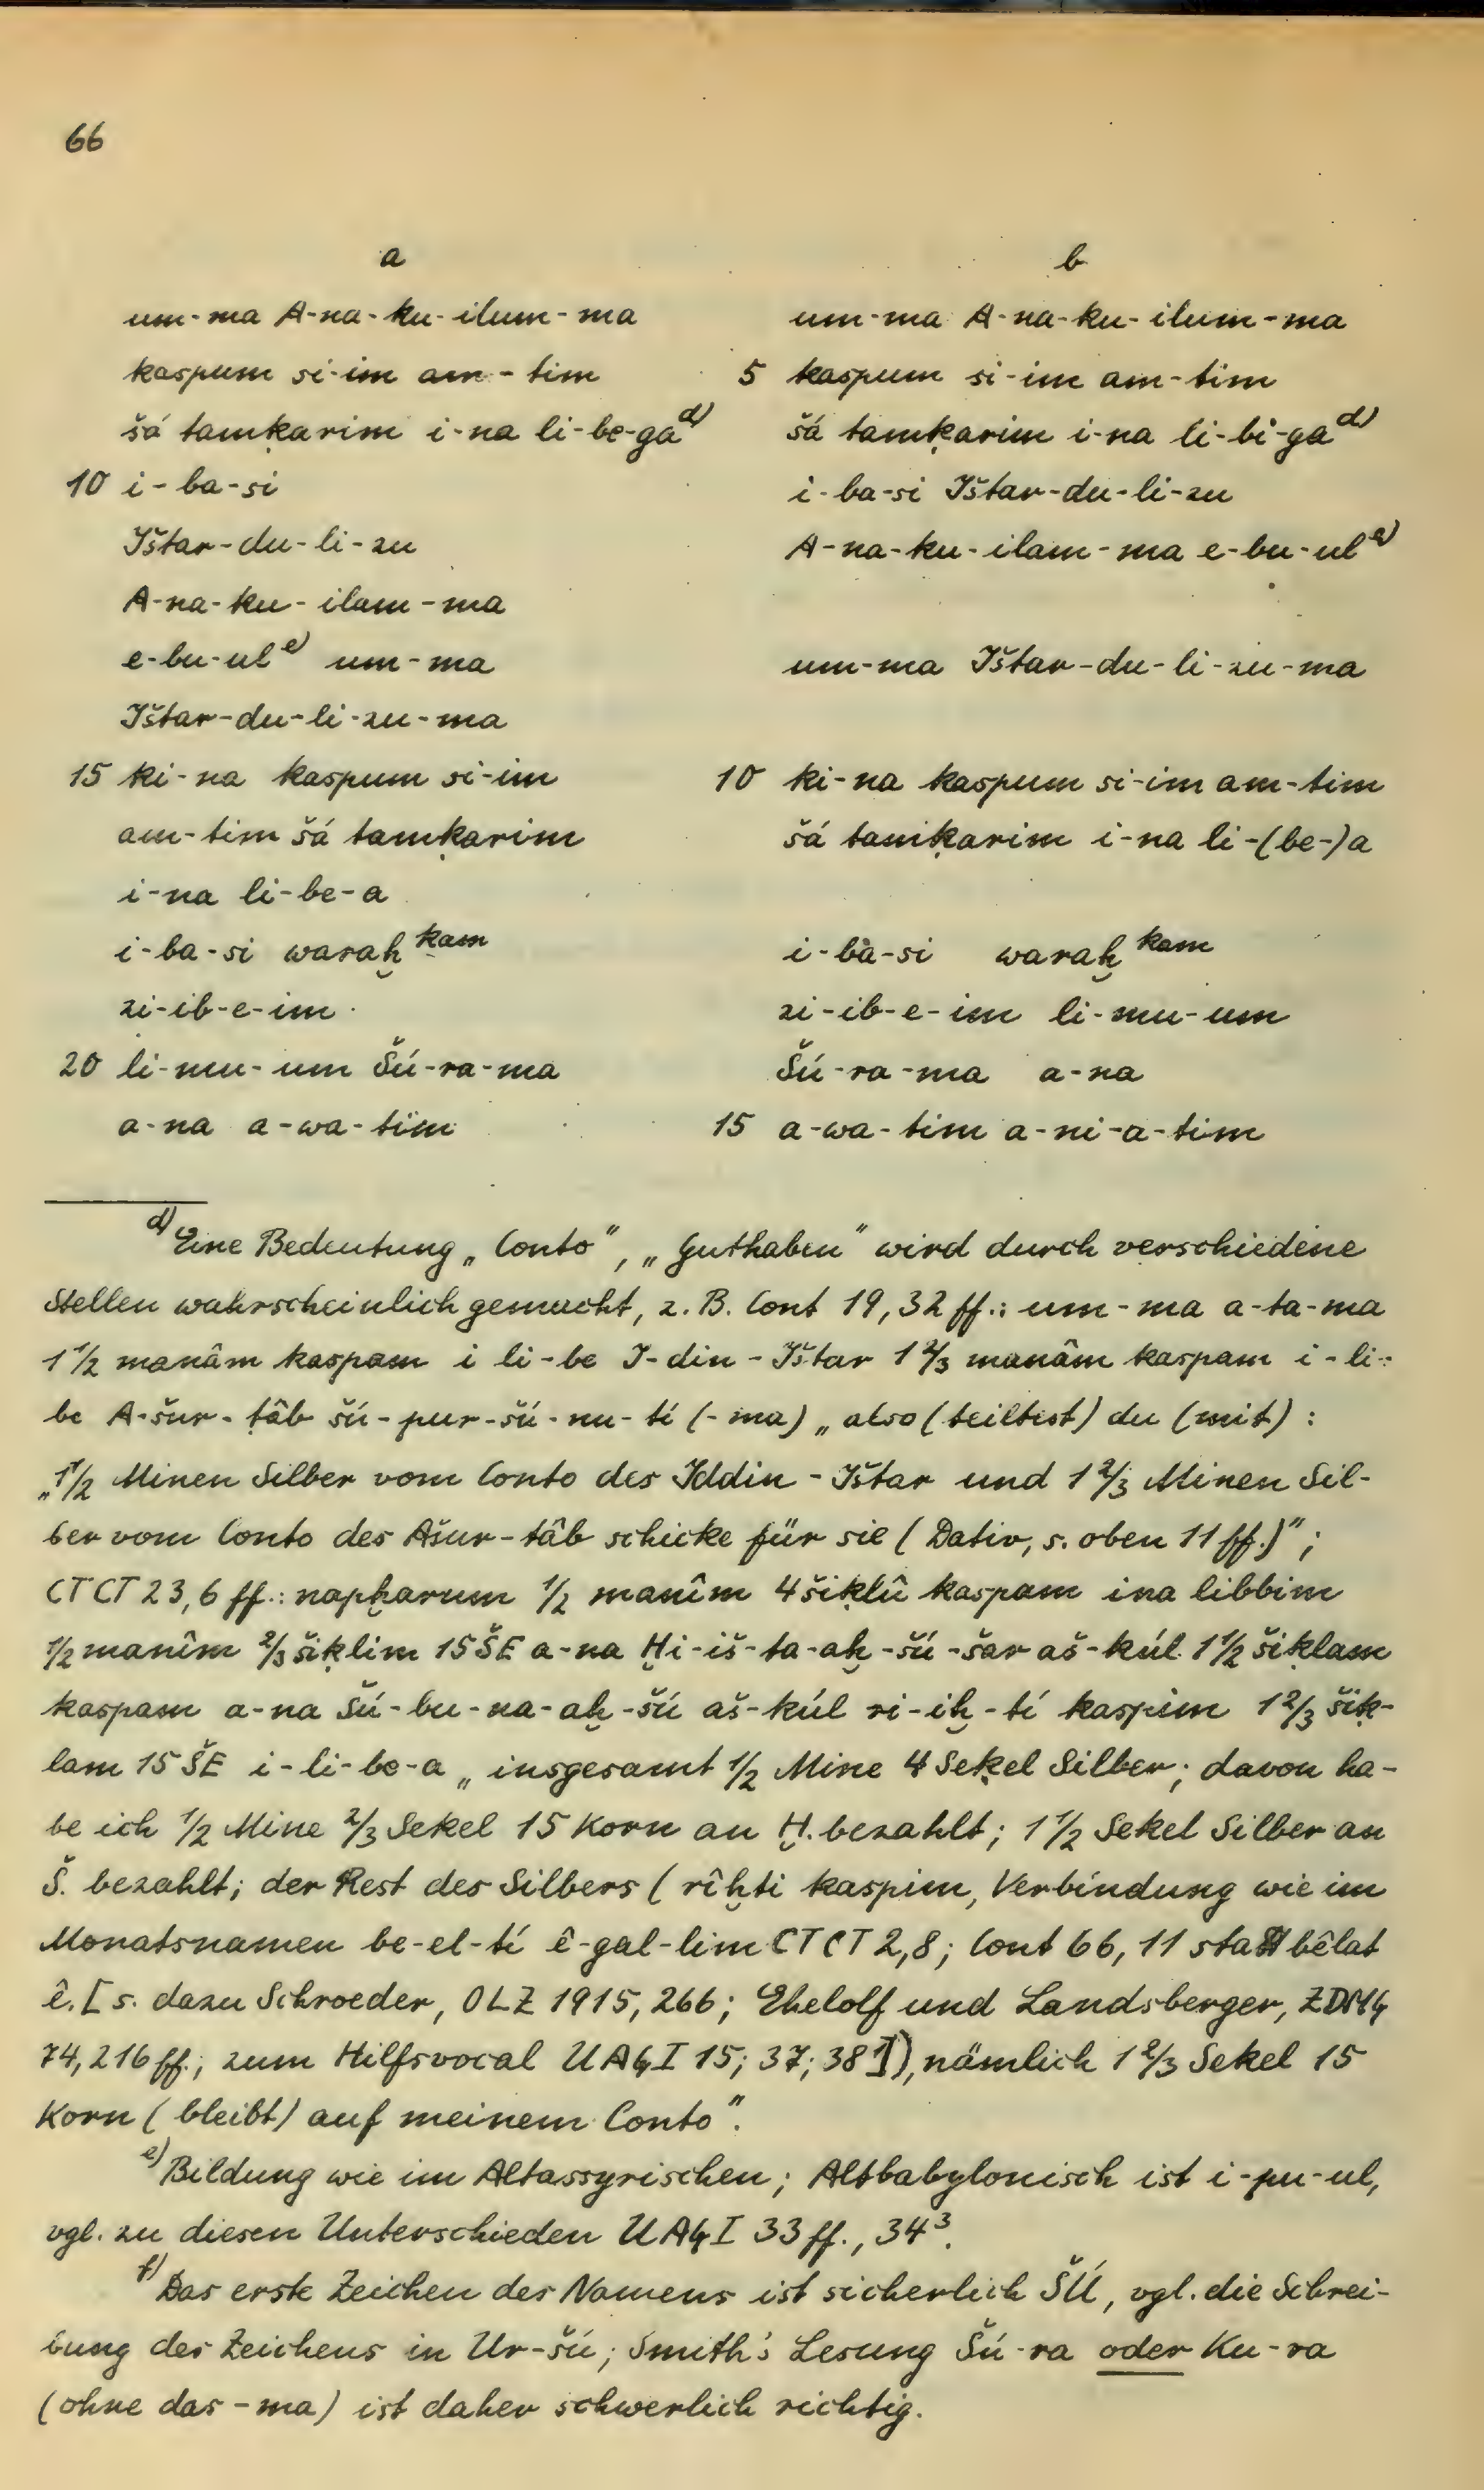 66
a
um-ma A-na-ku-ilum-ma
kaspum si-im am-tim
šá tamḳarim i-na li-be-ga d)
10 i-ba-si
Ištar-du-li-zu
A-na-ku-ilam-ma
e-bu-ul e) um-ma
Ištar-du-li-zu-ma
15 ki-na kaspum si-im
am-tim šá tamḳarim
i-na li-be-a
i-ba-si waraḫ kam
zi-ib-e-im
20 li-mu-um Šú-ra-ma
a-na a-wa-tim
b
um-ma A-na-ku-ilum-ma
5 kaspum si-im am-tim
šá tamḳarim i-na li-bi-ga d)
i-ba-si Ištar-du-li-zu
A-na-ku-ilam-ma e-bu-ul e)
um-ma Ištar-du-li-zu-ma
10 ki-na kaspum si-im am-tim
šá tamḳarim i-na li-(be-)a
i-ba-si waraḫ kam
zi-ib-e-im li-mu-um
Šú-ra-ma a-na
15 a-wa-tim a-ni-a-tim
d) Eine Bedeutung „Conto”, „Guthaben” wird durch verschiedene
Stellen wahrscheinlich gemacht, z. B. Cont 19, 32 ff.: um-ma a-ta-ma
1 1/2 manâm kaspam i li-be I-din-Ištar 1 2/3 manâm kaspam i-li-
be A-šur-ṭâb šú-pur-šú-nu-tí (-ma) „also (teiltest) du (mit):
„1 1/2 Minen Silber vom Conto des Iddin-Ištar und 1 2/3 Minen Sil-
ber vom Conto des Ašur-ṭâb schicke für sie (Dativ, s. oben 11 ff.)”;
CTCT 23, 6 ff.: napḫarum 1/2 manîm 4 šiḳlû kaspam ina libbim
1/2 manîm 2/3 šiḳlim 15 ŠE a-na Ḫi-iš-ta-aḫ-šú-šar aš-kúl 1 1/2 šiḳlam
kaspam a-na Šú-bu-na-aḫ-šú aš-kúl ri-iḫ-tí kaspim 1 2/3 šiḳ-
lam 15 ŠE i-li-be-a „insgesamt 1/2 Mine 4 Seḳel Silber; davon ha-
be ich 1/2 Mine 2/3 Sekel 15 Korn an Ḫ. bezahlt; 1 1/2 Sekel Silber an
Š. bezahlt; der Rest des Silbers (rîḫti kaspim, Verbindung wie im
Monatsnamen be-el-tí ê-gal-lim CTCT 2, 8; Cont 66, 11 statt bêlat
ê. [s. dazu Schroeder, OLZ 1915, 266; Ehelolf und Landsberger, ZDMG
74, 216 ff.; zum Hilfsvocal UAG I 15; 37; 38 1]), nämlich 1 2/3 Sekel 15
Korn (bleibt) auf meinem Conto”.
e) Bildung wie im Altassyrischen; Altbabylonisch ist i-pu-ul,
vgl. zu diesen Unterschieden UAG I 33 ff., 34 3.
f) Das erste Zeichen des Namens ist sicherlich ŠÚ, vgl. die Schrei-
bung des Zeichens in Ur-šú; Smith's Lesung Šú-ra oder Ku-ra
(ohne das -ma) ist daher schwerlich richtig.